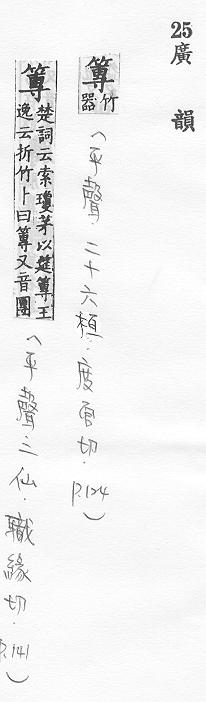 25 廣韻
篿 竹器 (平聲.二十六桓.度官切.P.124)
篿 楚詞云索瓊茅以筳篿王
逸云折竹卜曰篿又音團 (平聲.二仙.職緣切.P.141)